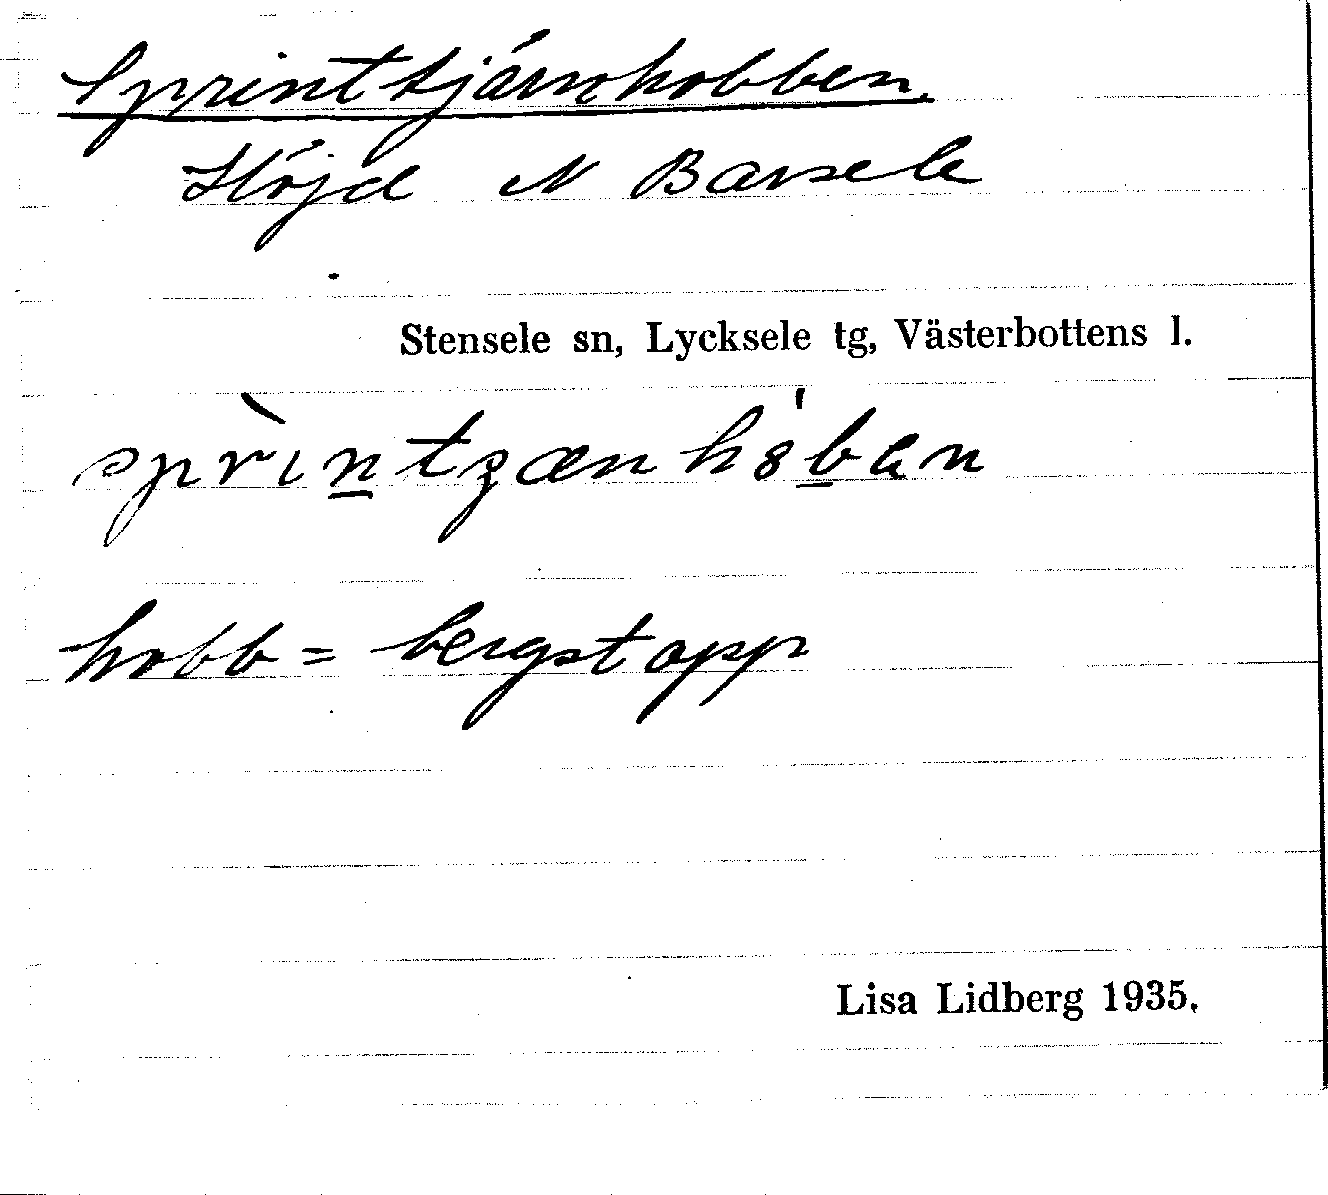 Sprinttjärnhobben.
Höjd N Barsele
Stensele sn, Lycksele tg, Västerbottens l.
sprìn̲tȝænhȣ́b̲ɐn
hobb = bergstopp
Lisa Lidberg 1935.